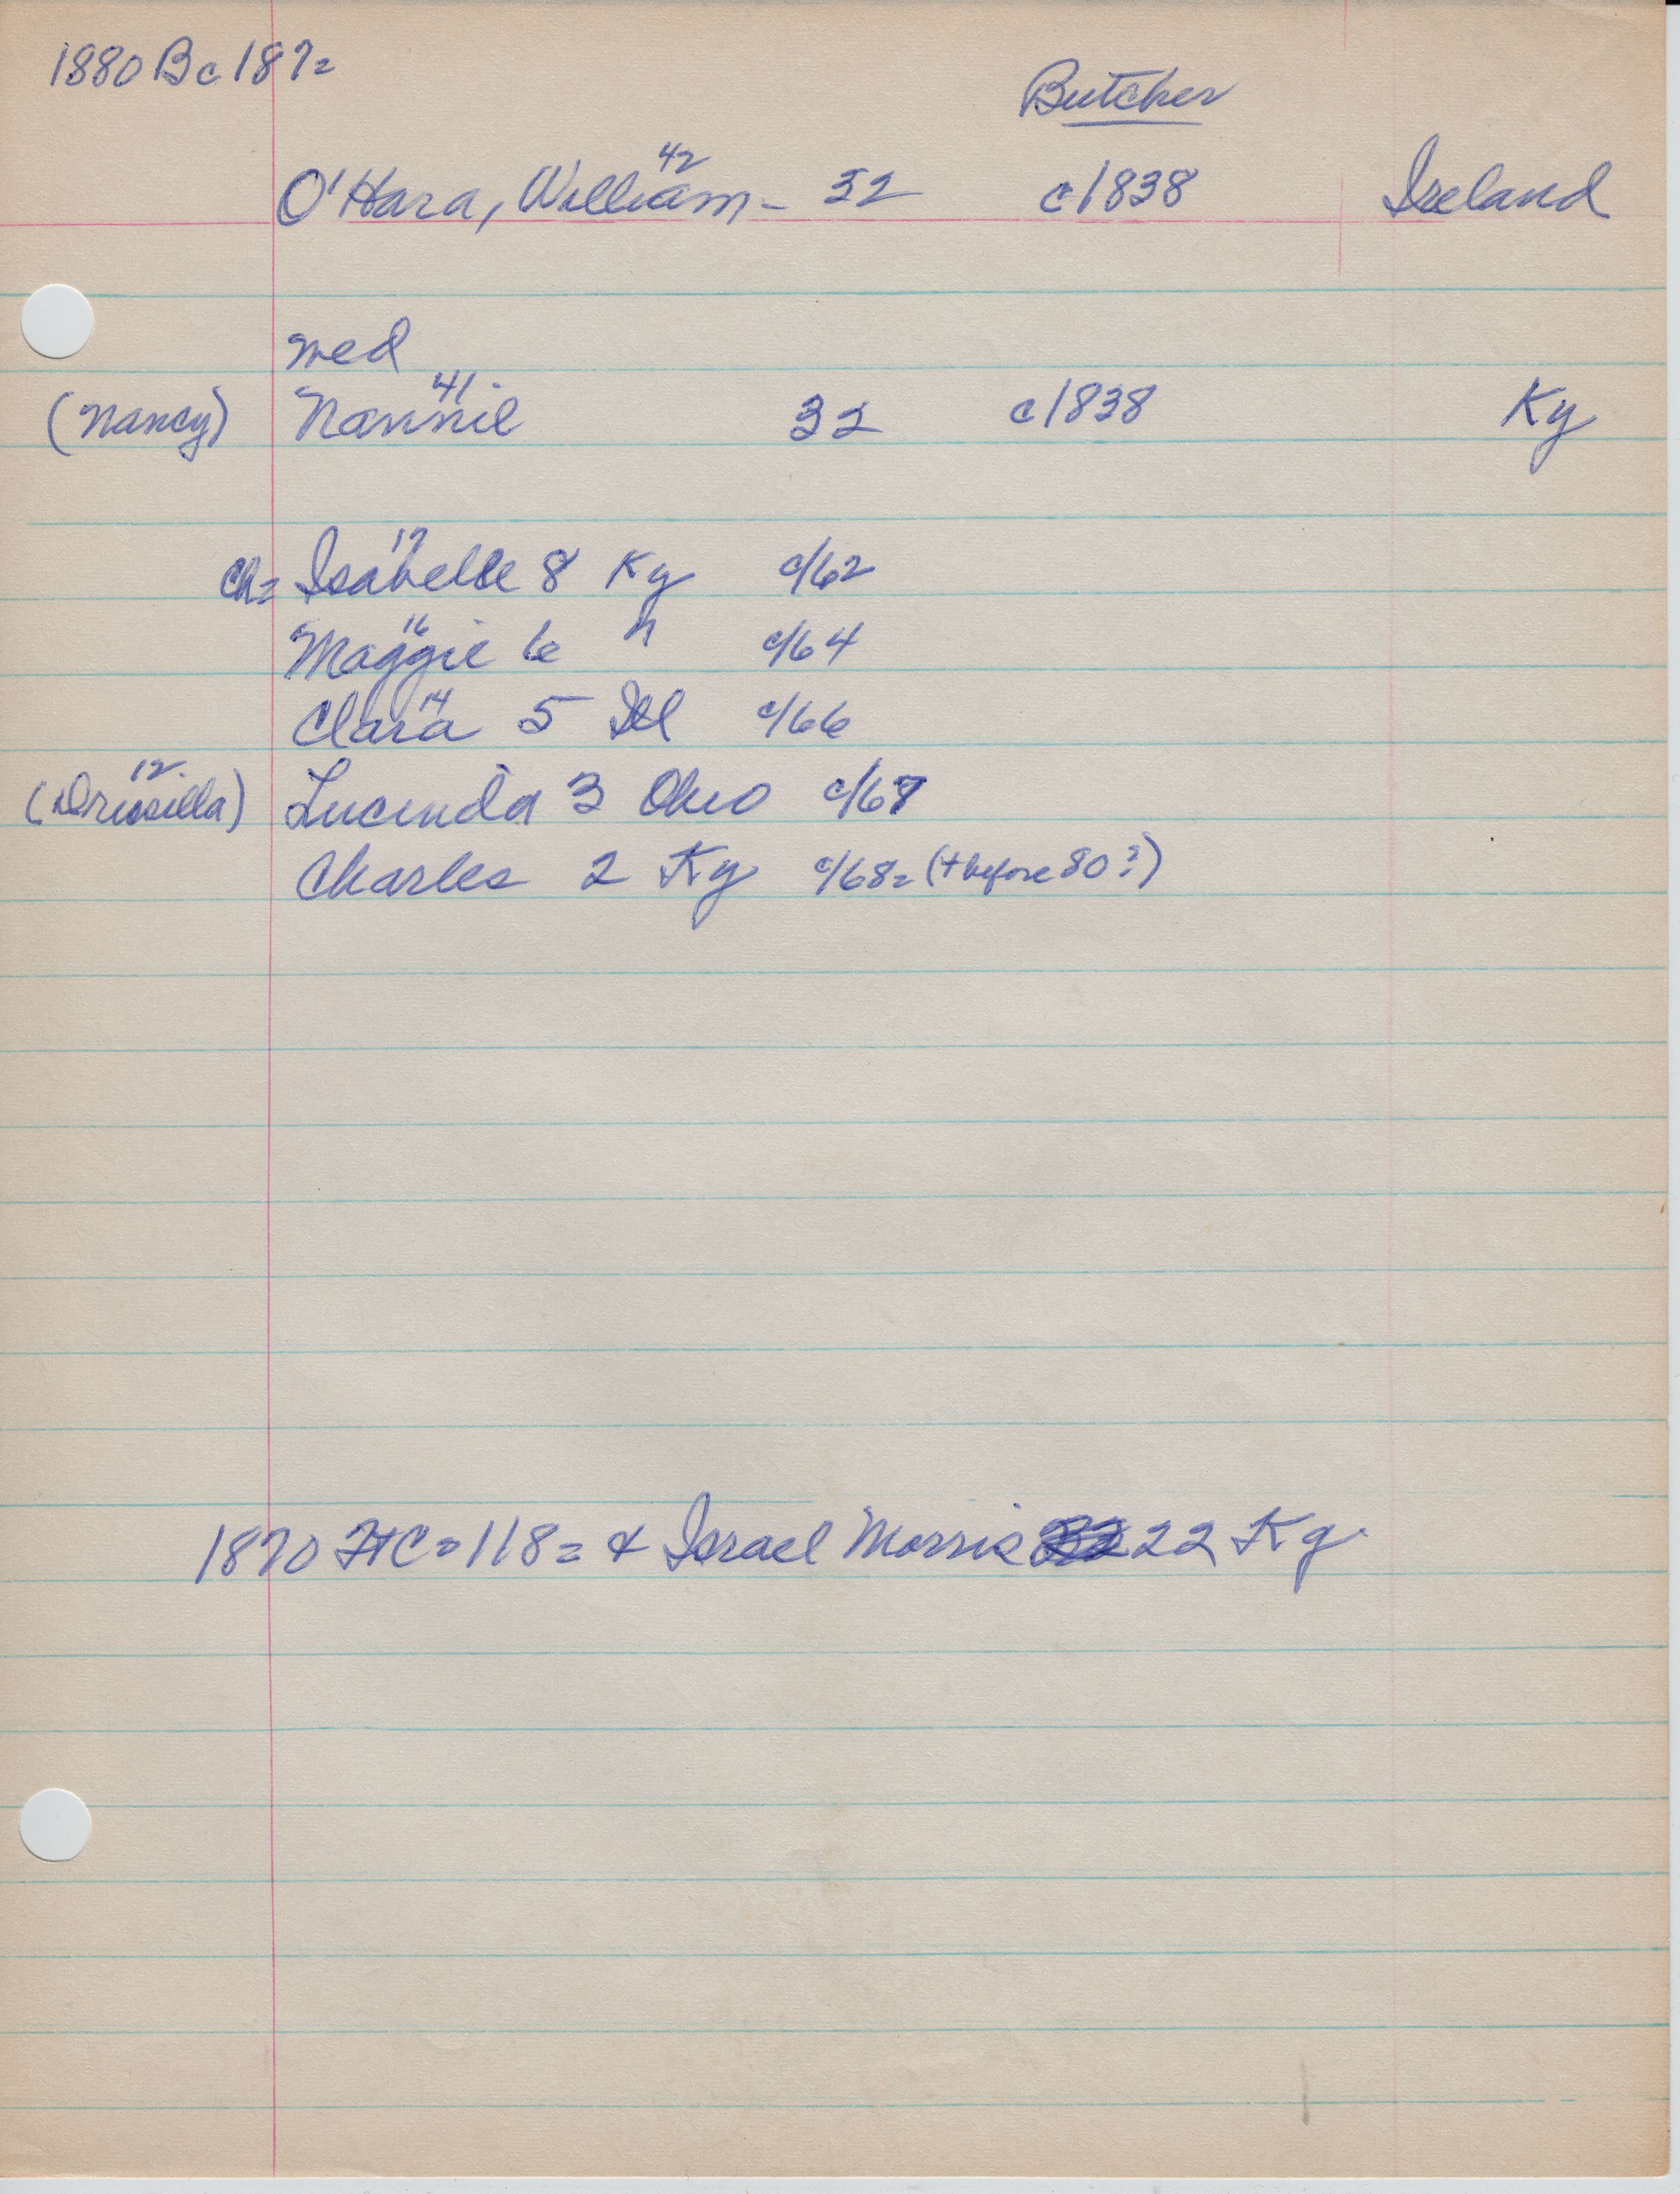 1880 Bc 187=
Butcher
42
O'Hara, William - 32 c1838 Ireland
med
41
(Nancy) Nannie 32 c1838 Ky
17
ch= Isabelle 8 Ky c/62
16
Maggie 6 " c/64
14
Clara 5 Ill c/66
12
(Drusilla) Lucinda 3 Ohio c/67
Charles 2 Ky c/68= (+ before 80?)
1870 HC=118= & Israel Morris 22 Ky